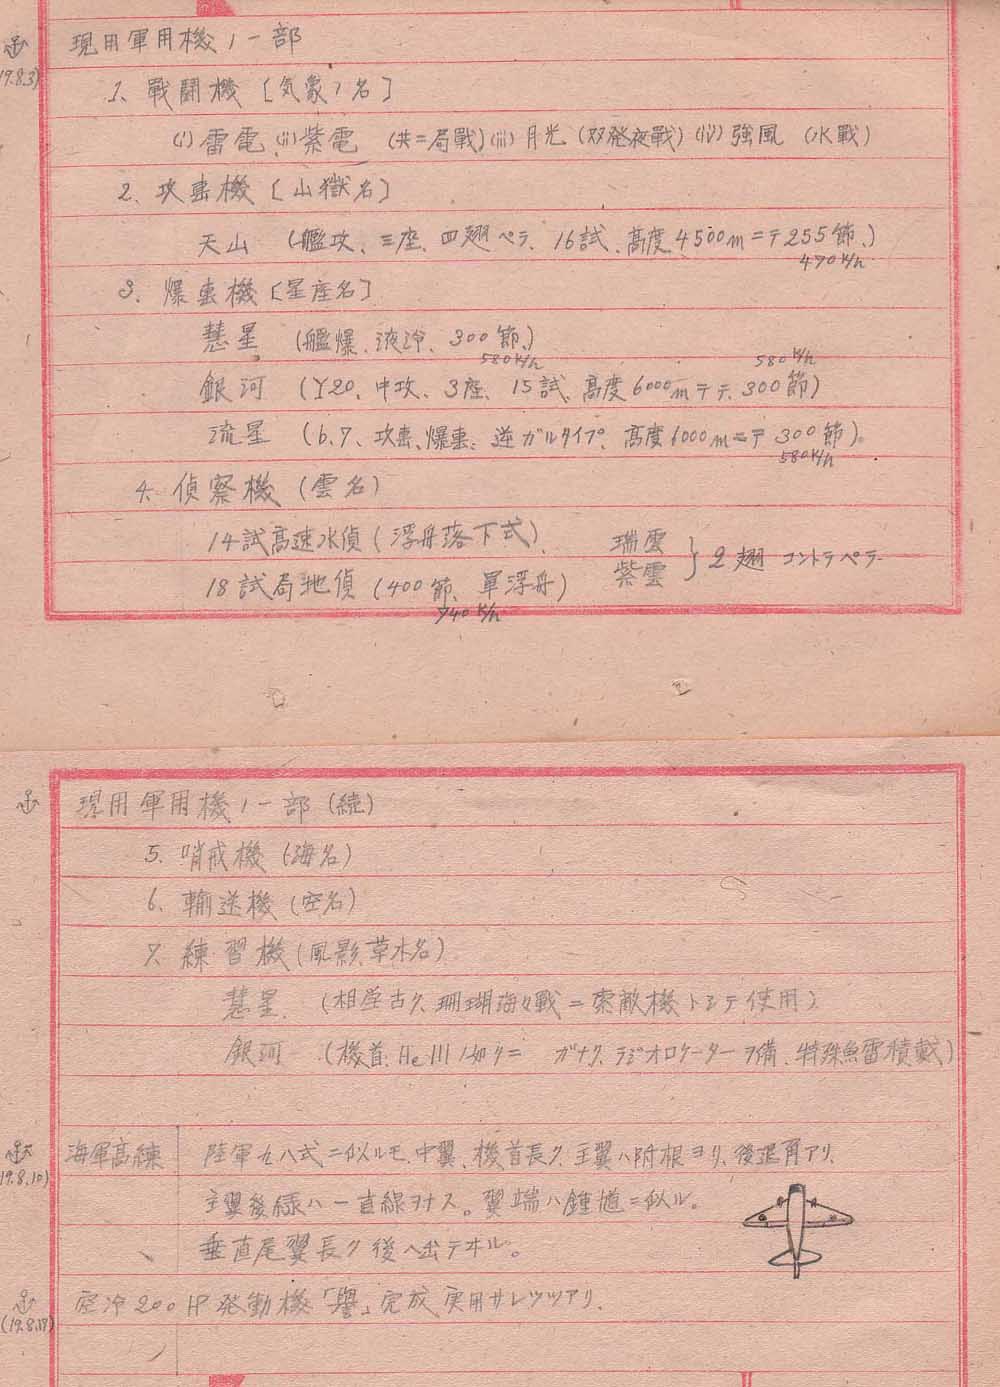 (19.8.3)
現用軍用機ノ一部
1、戰闘機 [気象ノ名]
(i) 雷電、(ii) 紫電 (共ニ局戰) (iii) 月光 (双発夜戰) (iV) 強風 (水戰)
2、攻撃機 [山嶽名]
天山 (艦攻、三座、四翅ペラ、16試、高度4500mニテ255節、)
470K/h
3、爆撃機 [星座名]
慧星 (艦爆、液冷、300節、)
580K/h
580K/h
銀河 (Y20、中攻、3座、15試、高度6000mテテ、300節)
流星 (b.7、攻撃、爆撃、逆ガルタイプ、高度6000mニテ300節)。
580K/h
4、偵察機 (雲名)
14試高速水偵 (浮舟落下式)、 瑞雲
18試局地偵 (400節、單浮舟) 紫雲 } 2翅 コントラペラー
740K/h
現用軍用機ノ一部 (続)
5、哨戒機 (海名)
6、輸送機 (空名)
7、練習機 (風影、草木名)
慧星、(相当古ク、珊瑚海々戰ニ索敵機トシテ使用)
銀河 (機首、He111ノ如クニ ガナク、ラジオロケーターヲ備、特殊魚雷積載)
(19.8.10)
海軍高練 陸軍九八式ニ似ルモ、中翼、機首長ク、主翼ハ附根ヨリ、後退角アリ、
主翼後縁ハ一直線ヲナス。翼端ハ鍾馗ニ似ル。
垂直尾翼長ク後ヘ出テオル。
(19.8.17)
空冷200HP発動機「譽」完成 実用サレツツアリ、